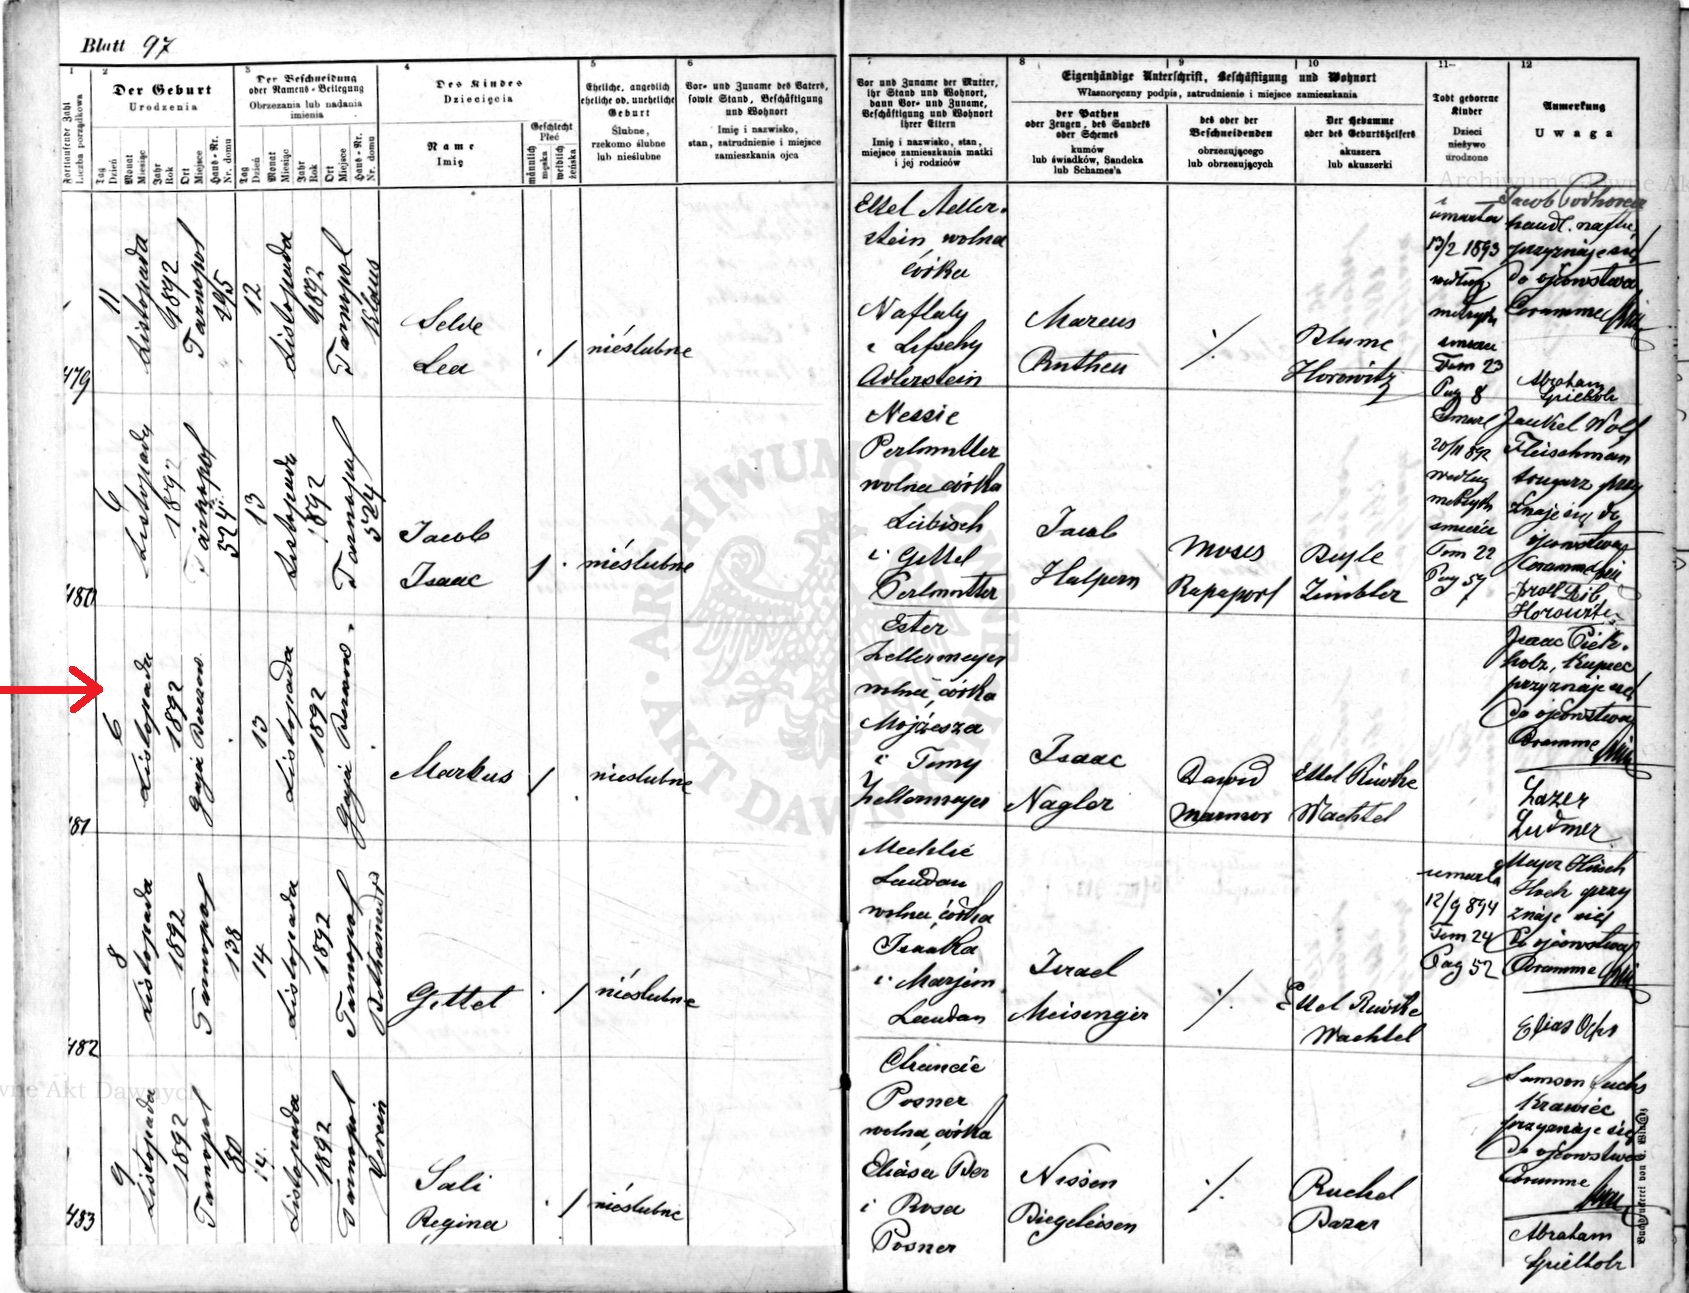 Blatt 97
1
2
Der Geburt
Urodzenia
3
Der Beschneidung
oder Namens-Beilegung
Obrzezania lub nadania
imienia
4
Des Kindes
Dziecięcia
Name
Imię
Geschlecht
Płeć
männlich
męska
weiblich
żeńska
5
Eheliche, angeblich
eheliche od. uneheliche
Geburt
Ślubne,
rzekomo ślubne
lub nieślubne
6
Vor- und Zuname des Vaters,
sowie Stand, Beschäftigung
und Wohnort
Imię i nazwisko,
stan, zatrudnienie i miejsce
zamieszkania ojca
7
Vor und Zuname der Mutter,
ihr Stand und Wohnort,
dann Vor- und Zuname,
Beschäftigung und Wohnort
ihrer Eltern
Imię i nazwisko, stan,
miejsce zamieszkania matki
i jej rodziców
8
9
10
Eigenhändige Unterschrift, Beschäftigung und Wohnort
Własnoręczny podpis, zatrudnienie i miejsce zamieszkania
der Pathen
oder Zeugen, des Sandeks
oder Schemes
kumów
lub świadków, Sandeka
lub Schames'a
des oder der
Beschneidenden
obrzezującego
lub obrzezujących
Der Hebamme
oder des Geburtshelfers
akuszera
lub akuszerki
11
Todt geborene
Kinder
Dzieci
nieżywo
urodzone
12
Anmerkung
Uwaga
Fortlaufende Zahl
Liczba porządkowa
Tag
Dzień
Monat
Miesiąc
Jahr
Rok
Ort
Miejsce
Haus-Nr.
Nr. domu
Tag
Dzień
Monat
Miesiąc
Jahr
Rok
Ort
Miejsce
Haus-Nr.
Nr. domu
479
11
Listopada
1892
Tarnopol
295
12
Listopada
1892
Tarnopol
Klaus
Selde
Lea
nieślubne
Ettel Adler-
stein, wolna
córka
Naftaly
i Lifschy
Adlerstein
Marcus
Ruthen
Blume
Horowitz
umarła
13/2 1893
według
metrych
śmierci
Tom 23
Pag 8
Jacob Podhorcer
handl. nafty,
przyznaje się
do ojcowstwa
Coramme
Abraham
Spielholz
480
6
Listopada
1892
Tarnopol
524
13
Listopada
1892
Tarnopol
524
Jacob
Isaac
nieślubne
Nessie
Perlmutter
wolna córka
Leibisch
i Gittel
Perlmutter
Jacob
Halpern
Moses
Rapaport
Beyle
Zimbler
Umarł
20/11 892
według
metrych
śmierci
Tom 22
Pag 57
Jankel Wolf
Fleischman
przy
znaje się do
ojcowstwa
Coramme
Izrael Leib
Horowitz
481
6
Listopada
1892
Gaje Berezow.
13
Listopada
1892
Gaje Berezow.
Markus
nieślubne
Ester
Zellermeyer
wolna, córka
Mojżesza
i Temy
Zellermeyer
Isaac
Nagler
Dawid
Marmor
Ettel Riwke
Wachtel
Isaac Pick-
holz, kupiec
przyznaje się
do ojcowstwa
Coramme
Lazer
Ludmer
482
8
Listopada
1892
Tarnopol
138
14
Listopada
1892
Tarnopol
Bethamedr.
Gittel
nieślubne
Mechlie
Landau
wolna, córka
Isaaka
i Marjem
Landau
Israel
Meisenger
Ettel Riwke
Wachtel
umarła
12/9 894
Tom 24
Pag 52
Majer Hirsch
Hoch przy
znaje się
do ojcowstwa
Coramme
Elias Ochs
483
9
Listopada
1892
Tarnopol
80
14.
Listopada
1892
Tarnopol
Verein
Sali
Regina
nieślubne
Chancie
Posner
wolna, córka
Eliasa Ber
i Rosa
Posner
Nissen
Biegeleisen
Ruchel
Bazar
Samson Fuchs
Krawiec
przyznaje się
do ojcowstwa
Coramme
Abraham
Spielholz
ARCHIWUM GŁÓWNE AKT DAWNYCH
Archiwum Główne Ak
wne Akt Dawnych